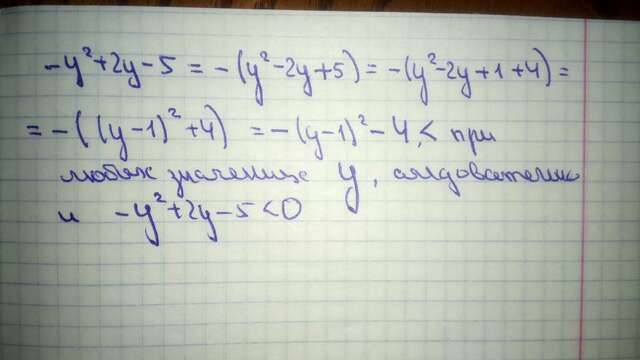 -y²+2y-5 = -(y²-2y+5) = -(y²-2y+1+4) =
= -((y-1)²+4) = -(y-1)²-4, < при
любых значениях y, следовательно
и -y²+2y-5<0